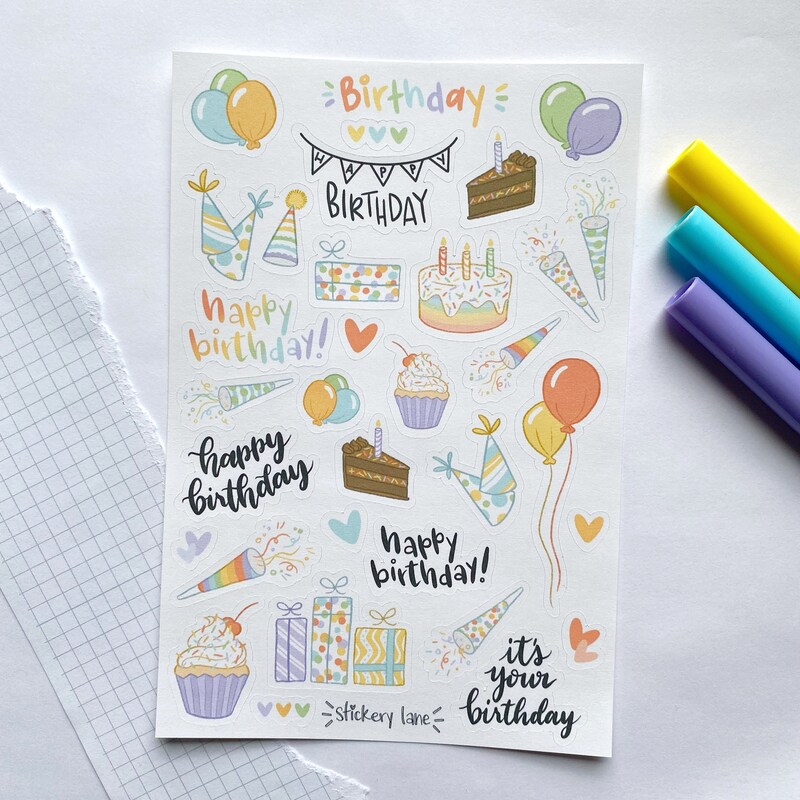 Birthday
HAPPY
BIRTHDAY
happy
birthday!
happy
birthday
happy
birthday!
it's
your
birthday
stickery lane